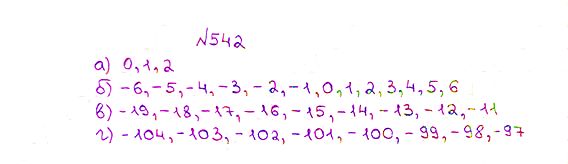 №542
а) 0, 1, 2
б) -6, -5, -4, -3, -2, -1, 0, 1, 2, 3, 4, 5, 6
в) -19, -18, -17, -16, -15, -14, -13, -12, -11
г) -104, -103, -102, -101, -100, -99, -98, -97